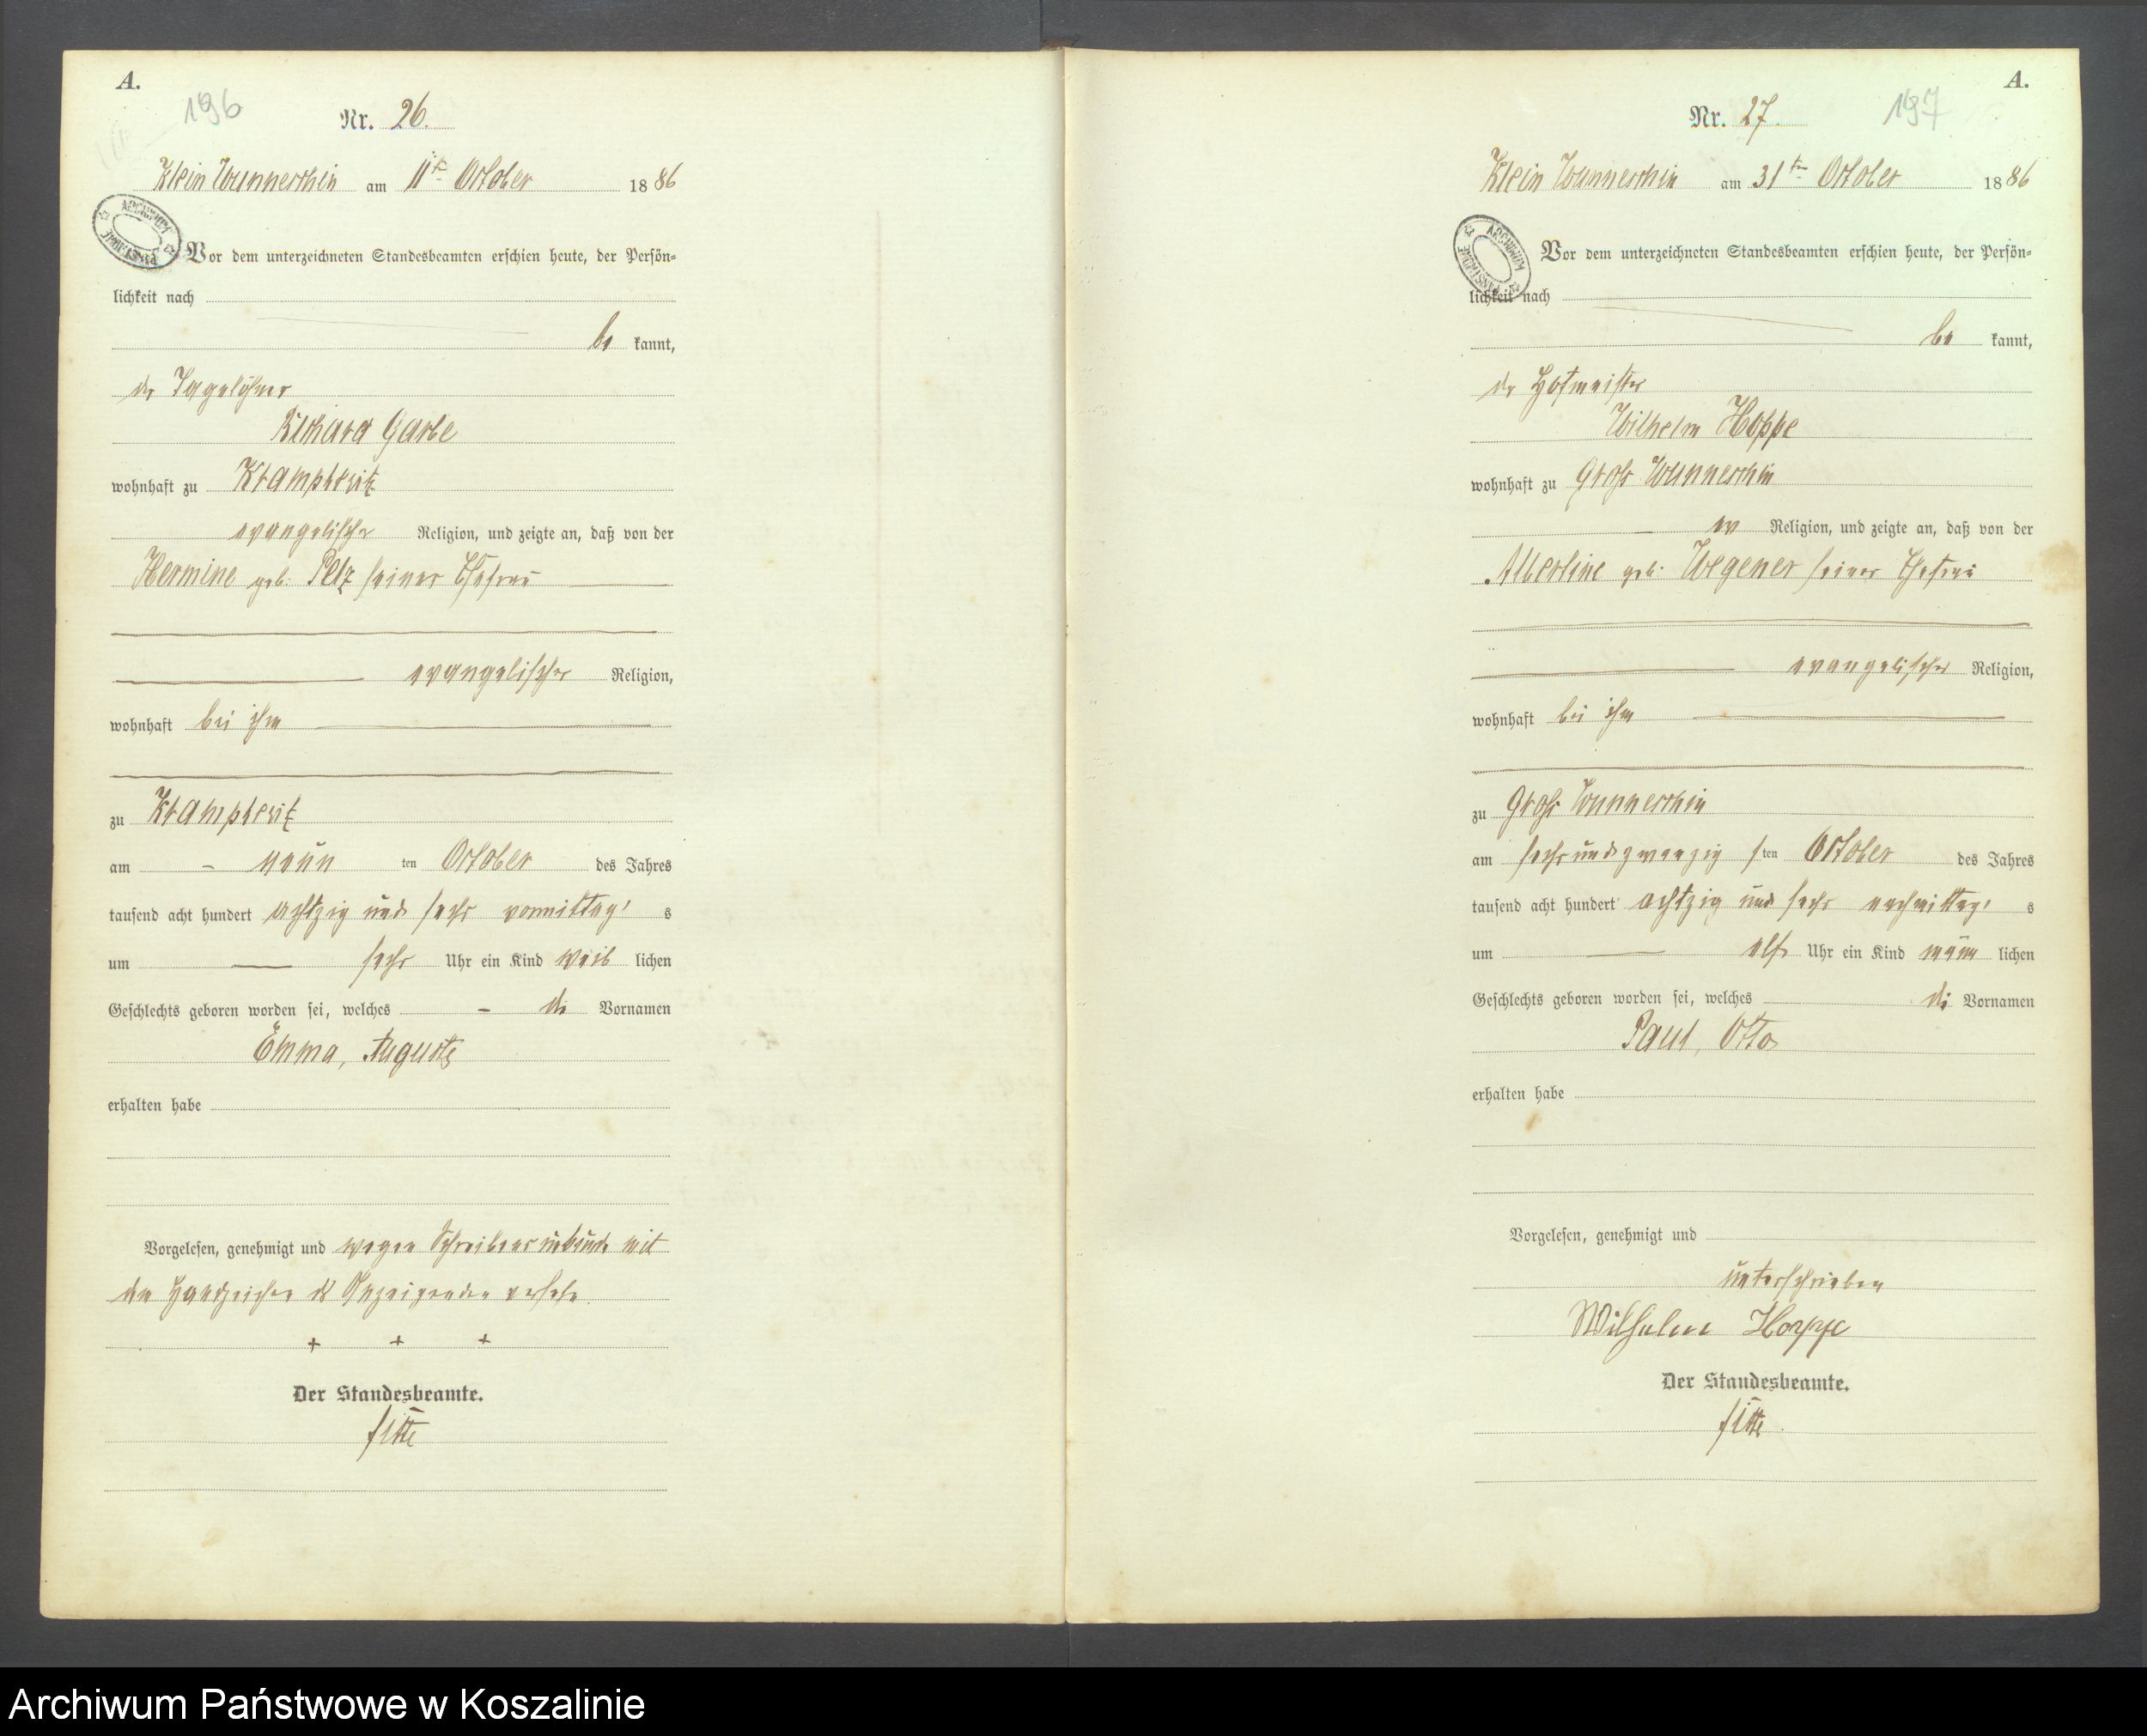 A.
196
Nr. 26.
Klein Wunneschin am 11ten October 1886
ARCHIWUM PAŃSTWOWE
Vor dem unterzeichneten Standesbeamten erschien heute, der Persön=
lichkeit nach
be kannt,
der Tagelöhner
Richard Garbe
wohnhaft zu Krampkewitz
evangelischer Religion, und zeigte an, daß von der
Hermine geb. Pelz seiner Ehefrau
evangelischer Religion,
wohnhaft bei ihm
zu Krampkewitz
am neun ten October des Jahres
tausend acht hundert achtzig und sechs vormittags
um sechs Uhr ein Kind weib lichen
Geschlechts geboren worden sei, welches die Vornamen
Emma, Auguste
erhalten habe
Vorgelesen, genehmigt und wegen Schreibensunkunde mit
den Handzeichen des Anzeigenden versehen.
+ + +
Der Standesbeamte.
A.
197
Nr. 27.
Klein Wunneschin am 31ten October 1886
ARCHIWUM PAŃSTWOWE
Vor dem unterzeichneten Standesbeamten erschien heute, der Persön=
lichkeit nach
be kannt,
der Hofmeister
Wilhelm Hoppe
wohnhaft zu Groß Wunneschin
ev Religion, und zeigte an, daß von der
Albertine geb. Wegener seiner Ehefrau
evangelischer Religion,
wohnhaft bei ihm
zu Groß Wunneschin
am sechsundzwanzigsten October des Jahres
tausend acht hundert achtzig und sechs nachmittags
um elf Uhr ein Kind männ lichen
Geschlechts geboren worden sei, welches die Vornamen
Paul, Otto
erhalten habe
Vorgelesen, genehmigt und
unterschrieben
Wilhelm Hoppe
Der Standesbeamte.
Archiwum Państwowe w Koszalinie